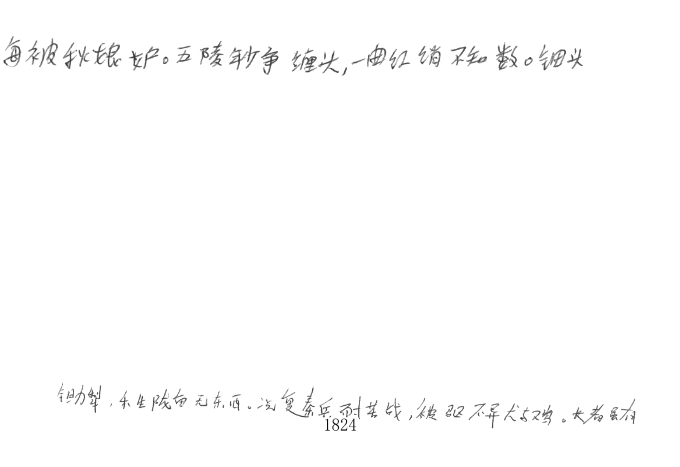 每被秋娘妒。五陵年少争缠头,一曲红绡不知数。钿头
锄犁,禾生陇亩无东西。况复秦兵耐苦战,被驱不异犬与鸡。长者虽有
1824